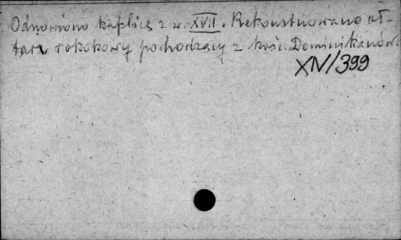 Odnowiono kaplicę z w. XVII. Rekonstruowano oł-
tarz rokokowy pochodzący z kość. Dominikanów.
XIV/399